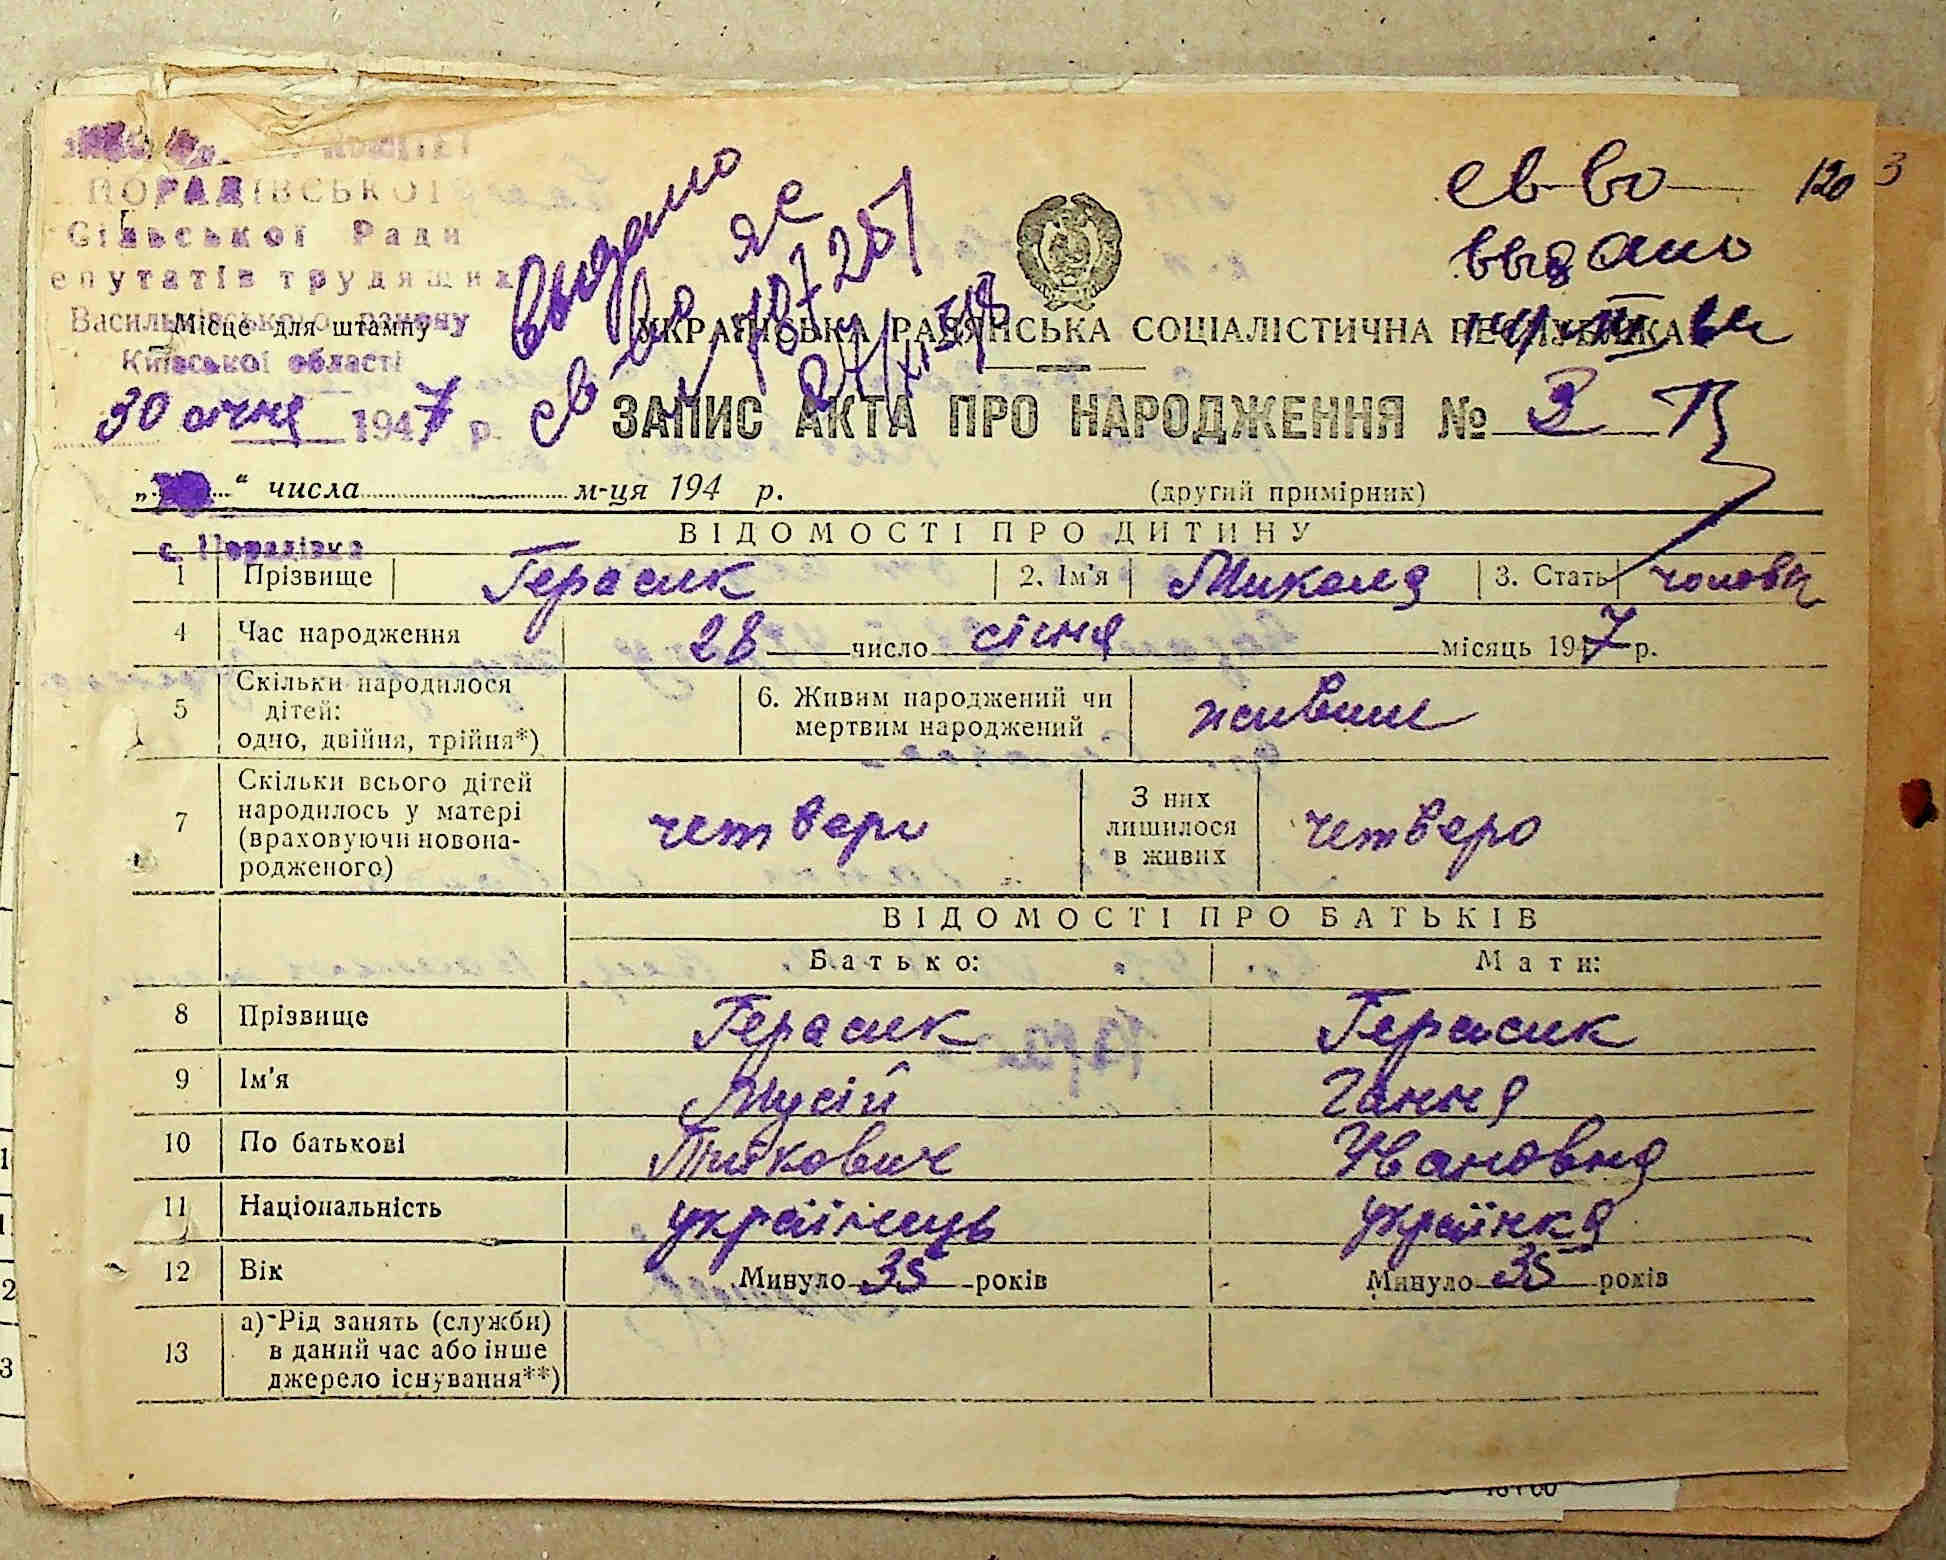 ПОРАДІВСЬКОЇ
Сільської Ради
епутатів трудящих
Васильківського району
Київської області
Місце для штампу
30 січня 1947 р.
с. Порадівка
Выдано
св-во
св-во
выдано
120
3
УКРАЇНСЬКА РАДЯНСЬКА СОЦІАЛІСТИЧНА РЕСПУБЛІКА
ЗАПИС АКТА ПРО НАРОДЖЕННЯ № 3
„ “ числа м-ця 194 р.
(другий примірник)
ВІДОМОСТІ ПРО ДИТИНУ
1 Прізвище Герасик 2. Ім'я Микола 3. Стать чоловіч
4 Час народження 28 число січня місяць 1947 р.
5 Скільки народилося дітей: одно, двійня, трійня*) 6. Живим народжений чи мертвим народжений живим
7 Скільки всього дітей народилось у матері (враховуючи новонародженого) четверо З них лишилося в живих четверо
ВІДОМОСТІ ПРО БАТЬКІВ
Батько: Мати:
8 Прізвище Герасик Герасик
9 Ім'я Мусій Ганна
10 По батькові Ивановна
11 Національність українець українка
12 Вік Минуло 35 років Минуло 35 років
13 а) Рід занять (служби) в даний час або інше джерело існування**)